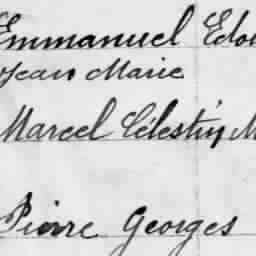 Emmanuel Edou
Jean Marie
Marcel Célestin M
Pierre Georges